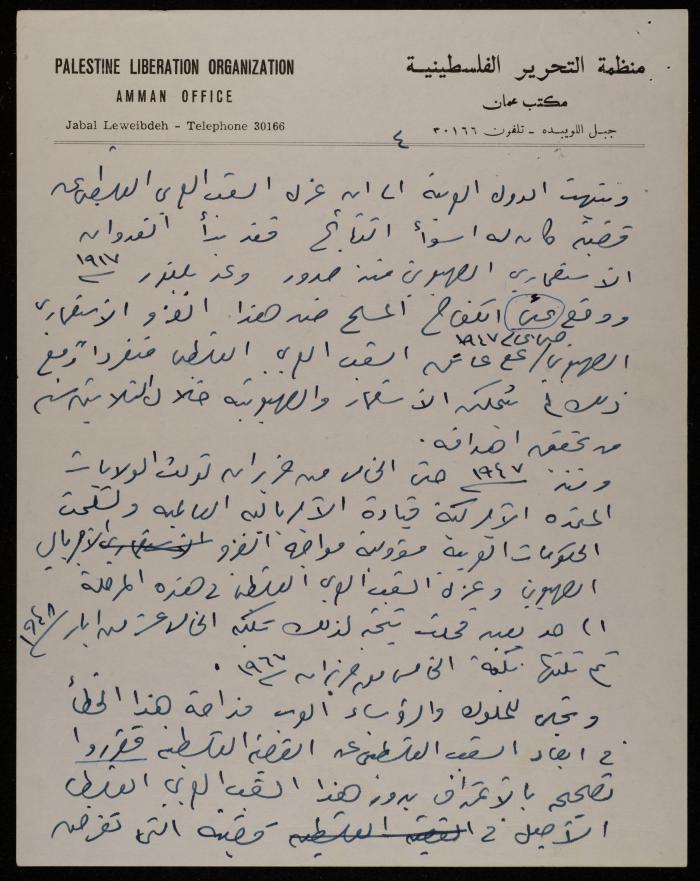 PALESTINE LIBERATION ORGANIZATION
AMMAN OFFICE
Jabal Leweibdeh - Telephone 30166
منظمة التحرير الفلسطينية
مكتب عمان
جبل اللويبده - تلفون ٣٠١٦٦
٤
وتنبهت الدول العربية الى ان عزل الشعب العربي الفلسطيني عن
قضيته كان له اسوأ النتائج فقد بدأ العدوان
الاستعماري الصهيوني منذ صدور وعد بلفور ١٩١٧
ووقع عبئ الكفاح المسلح ضد هذا الغزو الاستعماري
الصهيوني حتى عام ١٩٤٧ على عاتق الشعب العربي الفلسطيني منفردا ومع
ذلك لم يتمكن الاستعمار والصهيونية خلال الثلاثين سنه
من تحقيق اهدافه.
ومنذ ١٩٤٧ حتى الخامس من حزيران تولت الولايات
المتحده الأمريكية قيادة الامبريالية العالمية وتسلمت
الحكومات العربية مسؤولية مواجهة الغزو الاستعماري الامبريالي
الصهيوني وعزل الشعب العربي الفلسطيني في هذه المرحلة
الى حد بعيد فحلت نتيجة لذلك نكبة الخامس عشر من ايار ١٩٤٨
ثم تلتها نكبة الخامس من حزيران ١٩٦٧.
وتجلى للملوك والرؤساء العرب فداحة هذا الخطأ
في ابعاد الشعب الفلسطيني عن القضية الفلسطينية فقرروا
تصحيحه بالاعتراف بدور هذا الشعب العربي الفلسطيني
الأصيل في القضية الفلسطينية قضيته التي تفرض